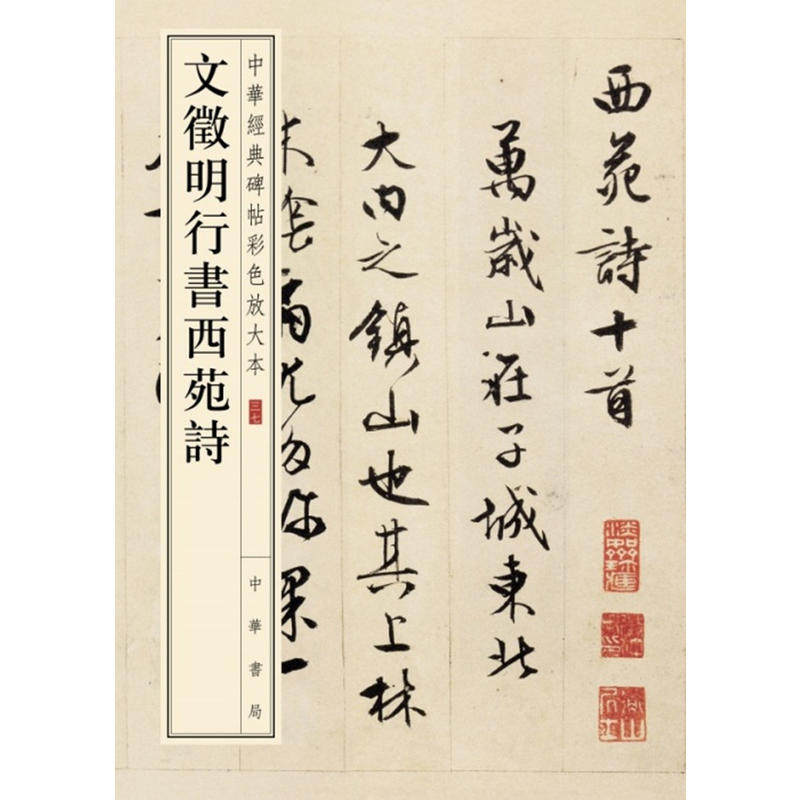 西苑詩十首
萬歲山在子城東北
大內之鎮山也其上林
尤多珎果一
中華經典碑帖彩色放大本 三七
中華書局
文徵明行書西苑詩